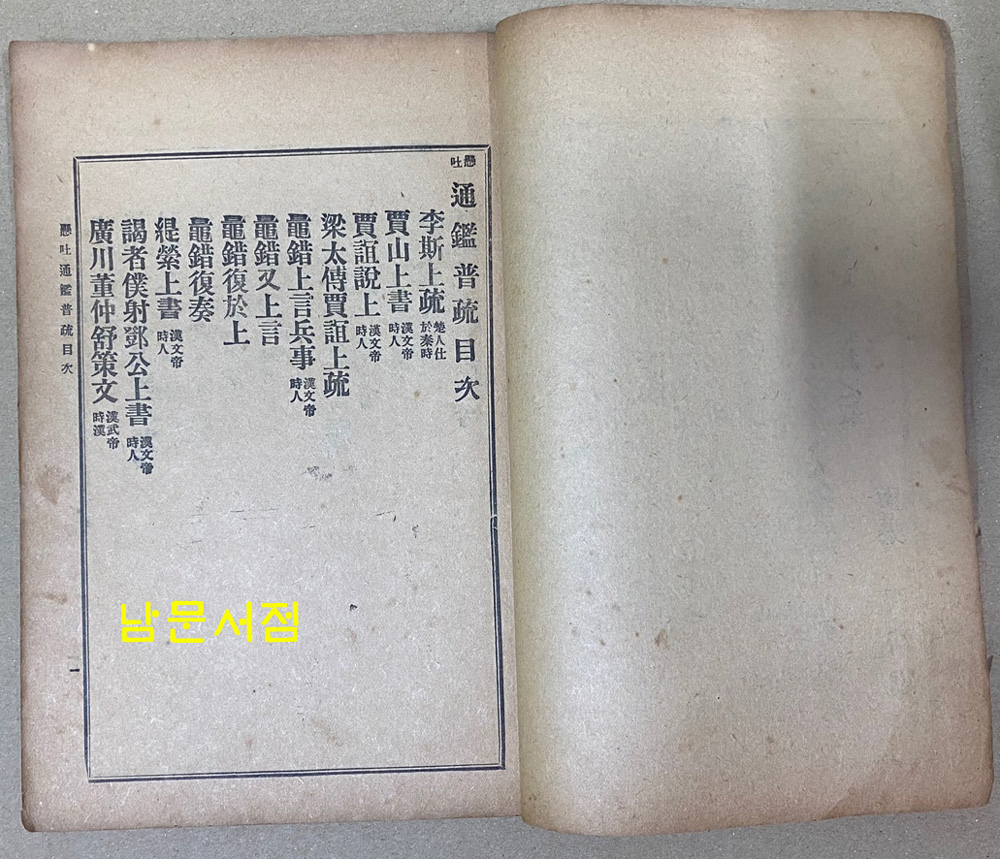 懸吐
通鑑普疏目次
李斯上疏 楚人仕於秦時
賈山上書 漢文帝時人
賈誼說上 漢文帝時人
梁太傅賈誼上疏
鼂錯上言兵事 漢文帝時人
鼂錯又上言
鼂錯復於上
鼂錯復奏
緹縈上書 漢文帝時人
謁者僕射鄧公上書 漢文帝時人
廣川董仲舒策文 漢武帝時漢
懸吐通鑑普疏目次
一
남문서점